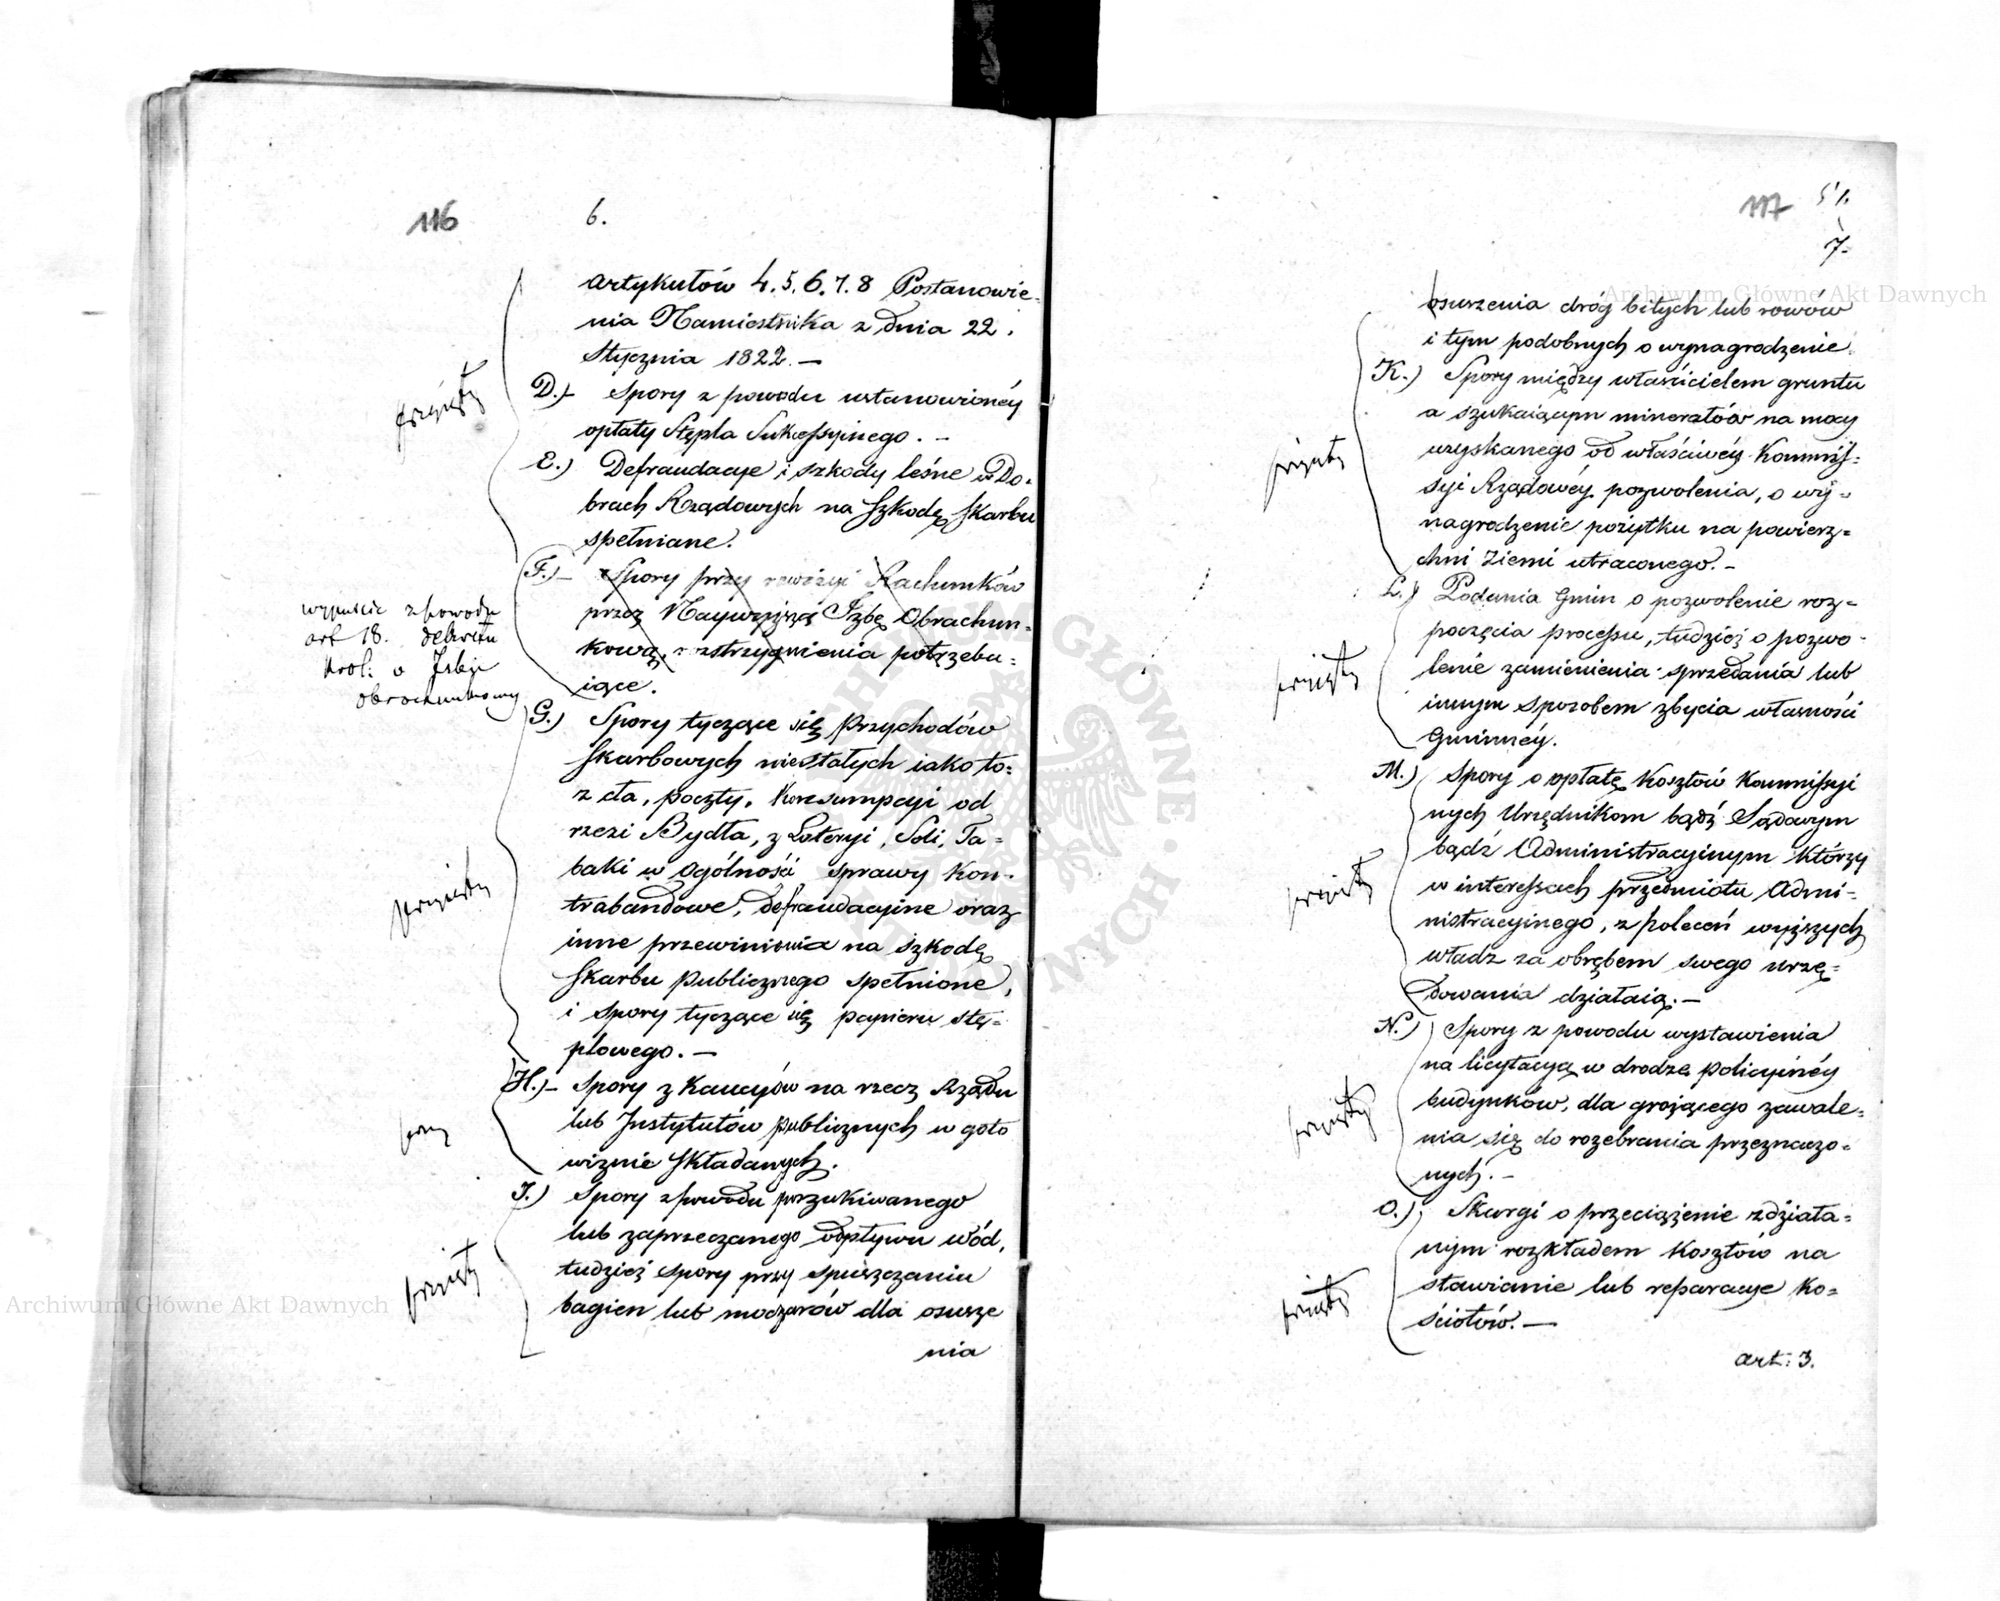 116
6.
Artykułów 4. 5. 6. 7. 8 Postanowie-
nia Namiestnika z dnia 22.
Stycznia 1822. —
przyięty
D.) Spory z powodu ustanowionéy
opłaty Stępla Sukcessyinego. —
E.) Defraudacye i szkody leśne w Do-
brach Rządowych na szkodę Skarbu
spełniane.
F.) — Spory przy rewizyi Rachunków
przez Naywyższą Izbę Obrachun-
kową, rozstrzygnienia potrzebu-
iące.
wypuścić z powodu
art 18. dekretu
Król: o Izbie
obrachunkowey
G.) Spory tyczące się Przychodów
Skarbowych niestałych iako to:
z cła, poczty, Konsumpcyi od
rzezi Bydła, z Loteryi, Soli, Ta-
baki w ogólności sprawy Kon-
trabandowe, defraudacyine oraz
inne przewinienia na szkodę
Skarbu Publicznego spełnione,
i spory tyczące się papieru stę-
plowego. —
przyięty
H.) — Spory z Kaucyów na rzecz Rządu
lub Instytutów publicznych w goto
wiznie składanych.
I.) Spory z powodu poszukiwanego
lub zaprzeczanego odpływu wód,
tudzież spory przy spuszczaniu
bagien lub moczarów dla osusze
nia
przyięty
Archiwum Główne Akt Dawnych
117 51.
7.
osuszenia dróg bitych lub rowów
i tym podobnych o wynagrodzenie.
K.) Spory między właścicielem gruntu
a szukaiącym minerałów na mocy
uzyskanego od właściwéy Kommis-
syi Rządowéy pozwolenia, o wy-
nagrodzenie pożytku na powierz-
chni ziemi utraconego. —
przyięty
L.) Podania Gmin o pozwolenie roz-
poczęcia processu, tudzież o pozwo-
lenie zamienienia sprzedania lub
innym sposobem zbycia własności
Gminnéy.
przyięty
M.) Spory o opłatę Kosztów Kommissyi
nych Urzędnikom bądź Sądowym
bądź Administracyinym którzy
w interessach przedmiotu Admi-
nistracyinego, z poleceń wyższych
władz za obrębem swego urzę-
dowania działaią. —
przyięty
N.) Spory z powodu wystawienia
na licytacyą w drodze policyinéy
budynków, dla grożącego zawale-
nia się do rozebrania przeznaczo-
nych. —
przyięty
O.) Skargi o przeciążenie zdziała-
nym rozkładem Kosztów na
stawianie lub reparacye Ko-
ściołów. —
przyięty
art: 3.
Archiwum Główne Akt Dawnych